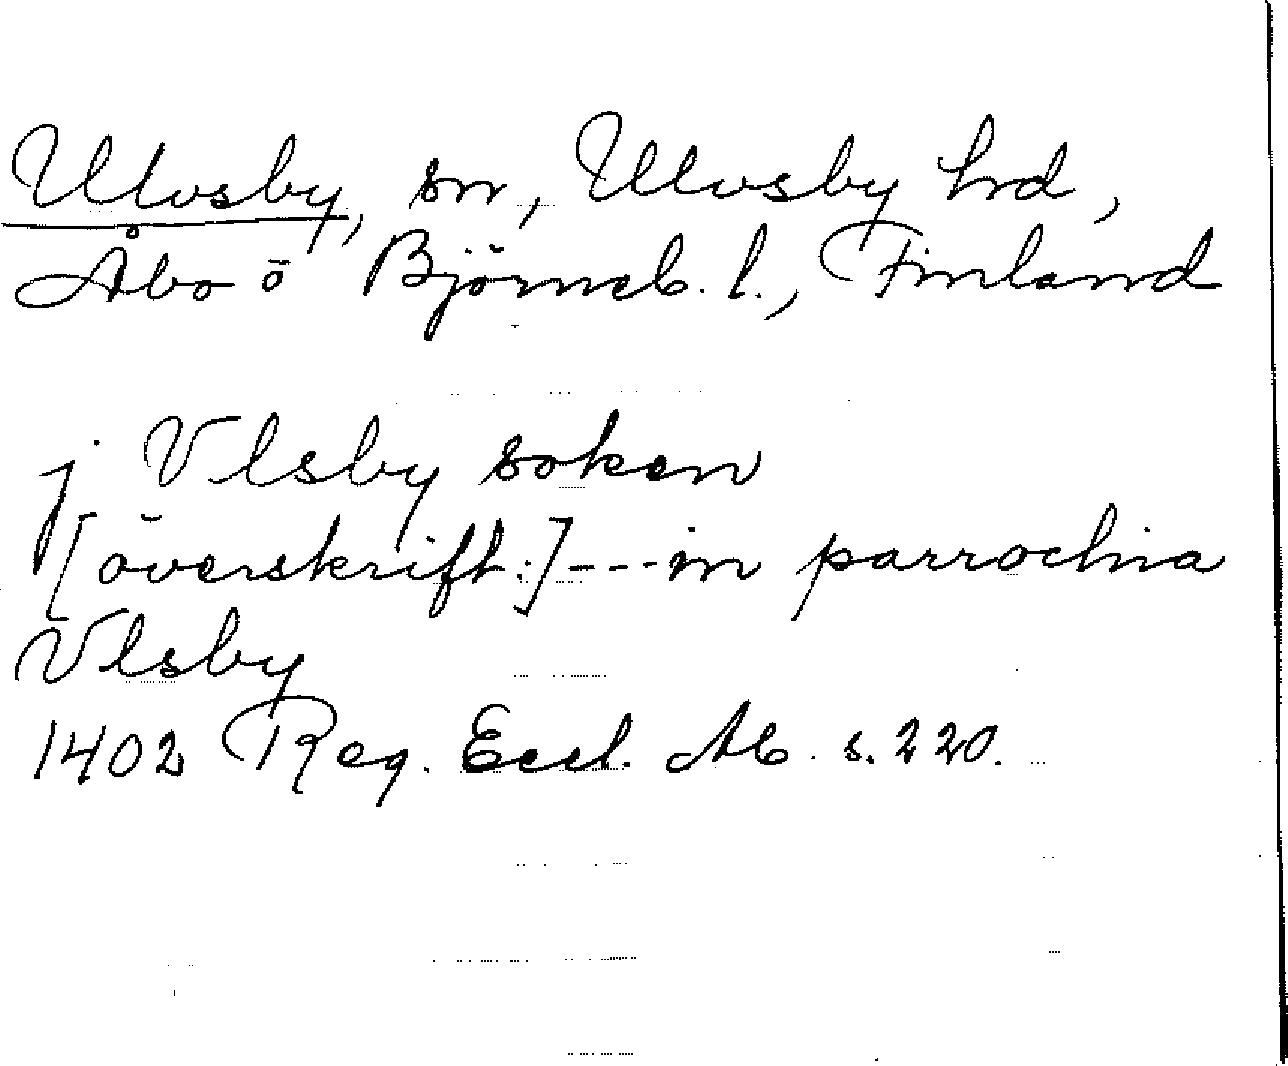 Ulvsby, sn, Ulvsby hd,
Åbo o Björneb. l., Finland
j Vlsby soken
[överskrift:] --- in parrochia
Vlsby
1402 Reg. Eccl. Ab. s. 220.